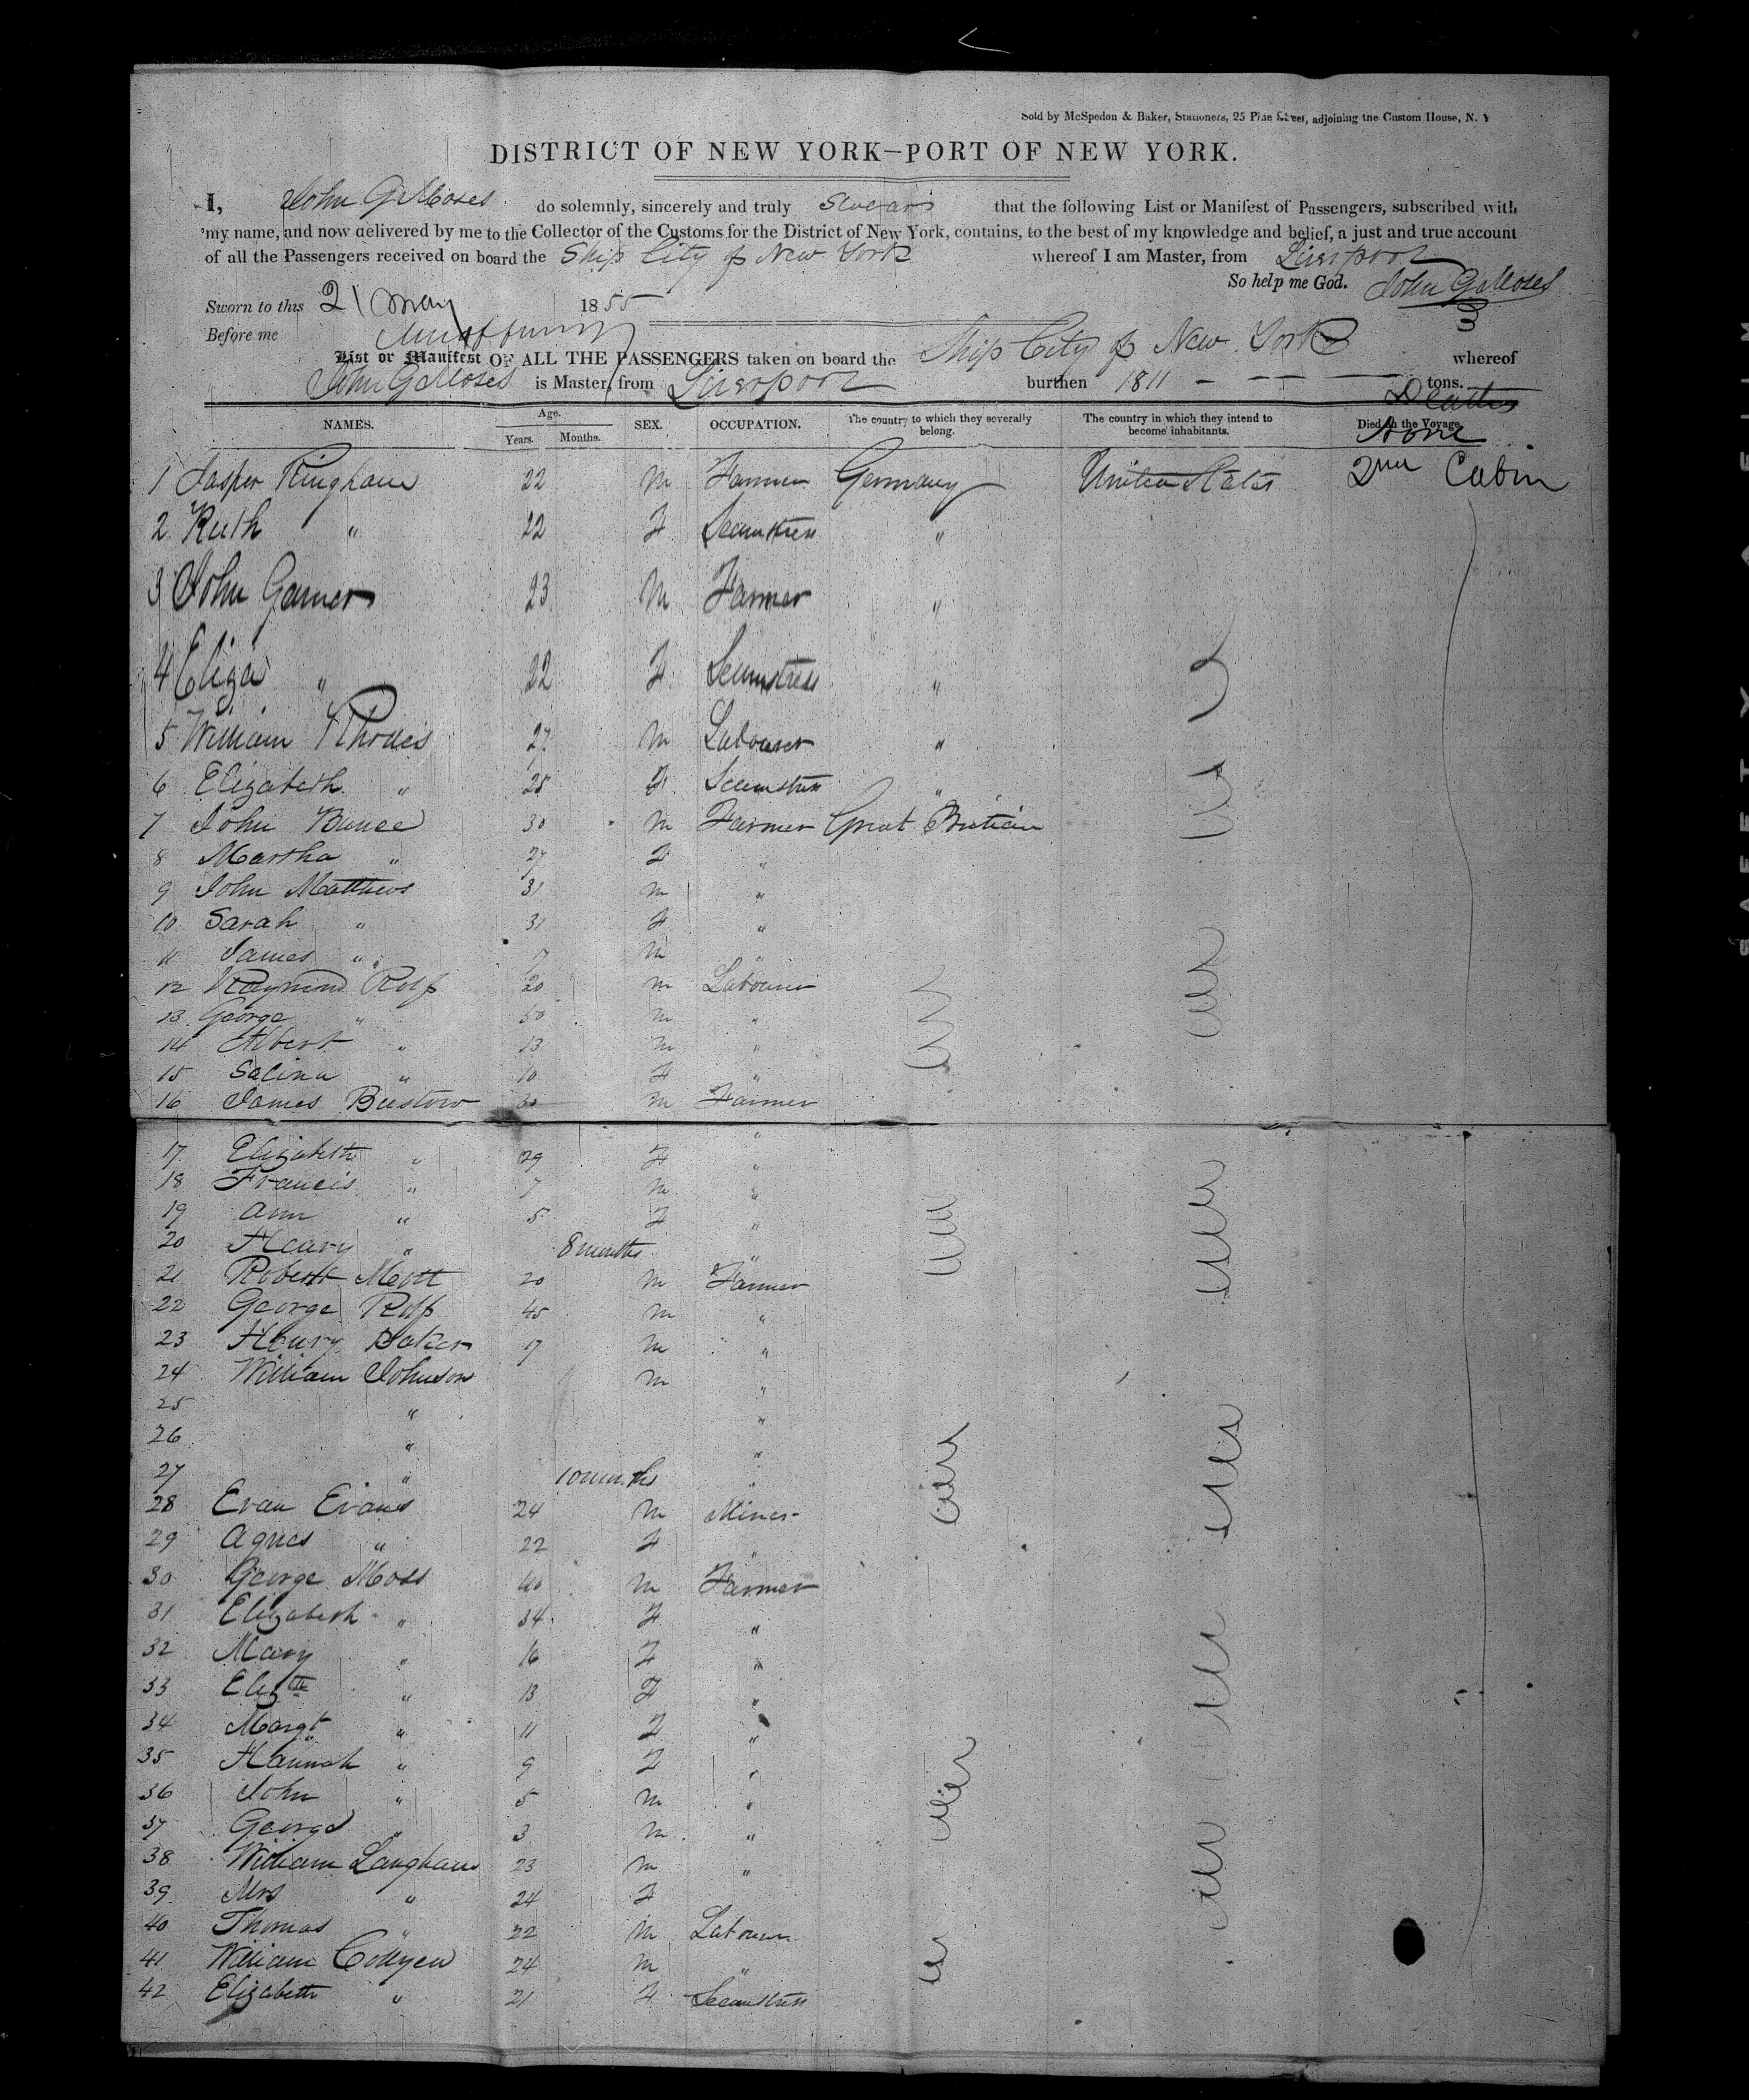 Sold by McSpedon & Baker, Stationers, 25 Pine Street, adjoining the Custom House, N. Y
DISTRICT OF NEW YORK—PORT OF NEW YORK.
I, John G Moses do solemnly, sincerely and truly swear that the following List or Manifest of Passengers, subscribed with
my name, and now delivered by me to the Collector of the Customs for the District of New York, contains, to the best of my knowledge and belief, a just and true account
of all the Passengers received on board the Ship City of New York whereof I am Master, from Liverpool
So help me God. John G Moses
Sworn to this 21 May 1855
Before me
List or Manifest OF ALL THE PASSENGERS taken on board the Ship City of New York whereof
John G Moses is Master, from Liverpool burthen 1811 — — — — tons.
Deaths
NAMES. Age. Years. Months. SEX. OCCUPATION. The country to which they severally belong. The country in which they intend to become inhabitants. Died on the Voyage.
None
1 Jasper Ringham 22 M Farmer Germany United States 2nd Cabin
2 Ruth " 22 F Seamstress "
3 John Garner 23 M Farmer "
4 Eliza " 22 F Seamstress "
5 William 27 M Labourer "
6 Elizabeth " 25 F Seamstress "
7 John Bunce 30 M Farmer Great Britain
8 Martha " 27 F "
9 John Matthews 31 M "
10 Sarah " 31 F "
11 James " 7 M "
12 Raymond Rolf 20 M Labourer
13 George " 50 M "
14 Albert " 13 M "
15 Selina " 10 F "
16 James Bustow 30 M Farmer
17 Elizabeth " 29 F "
18 Francis " 7 M "
19 Ann " 5 F "
20 Henry " 8 months "
21 Robert Mott 20 M Farmer
22 George Rolf 45 M "
23 Henry Baker 17 M "
24 William Johnson M "
25 " "
26 " "
27 " 10 months "
28 Evan Evans 24 M Miner
29 Agnes " 22 F "
30 George Moss 40 M Farmer
31 Elizabeth " 34 F "
32 Mary " 16 F "
33 Elizth " 13 F "
34 Margt " 11 F "
35 Hannah " 9 F "
36 John " 5 M "
37 George " 3 M "
38 William Langham 23 M "
39 Mrs " 24 F
40 Thomas " 22 M Labourer
41 William Collyen 24 M "
42 Elizabeth " 21 F Seamstress